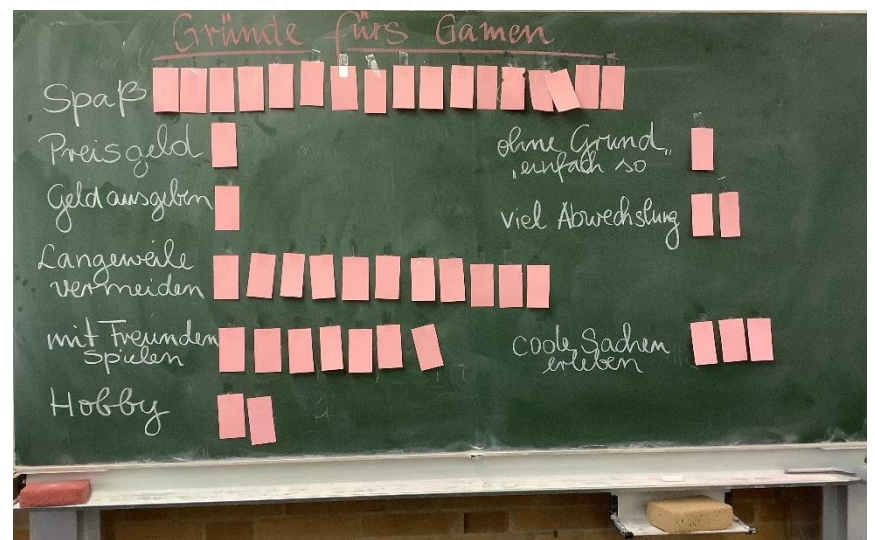 Gründe fürs Gamen
Spaß
Preisgeld
Geld ausgeben
Langeweile
vermeiden
mit Freunden
spielen
Hobby
ohne Grund,
"einfach so
viel Abwechslung
coole Sachen
erleben